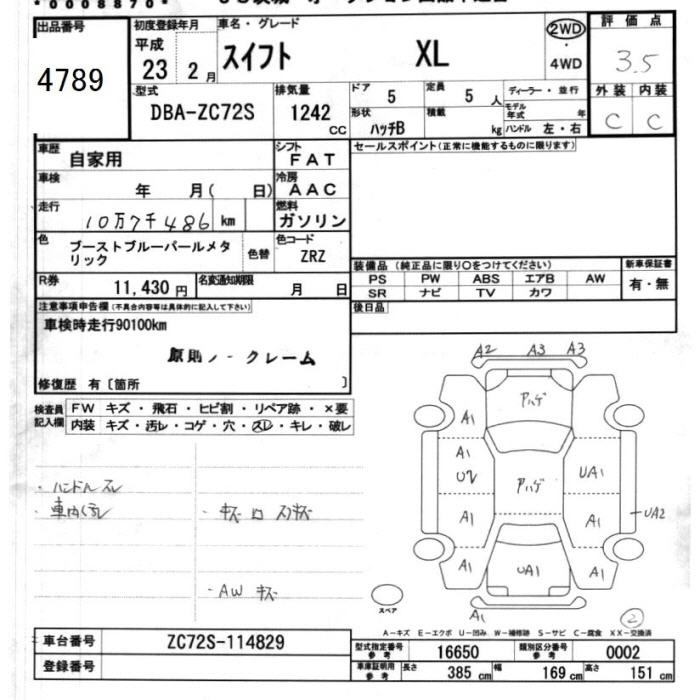 *0008870*
出品番号
4789
初度登録年月
平成
23 2月
車名・グレード
スイフト XL
2WD
・
4WD
評価点
3.5
外装 内装
C C
型式
DBA-ZC72S
排気量
1242
CC
ドア 5
定員 5 人
ディーラー・並行
形状
ハッチB
積載 kg
モデル年式 年
ハンドル 左・右
車歴
自家用
シフト
FAT
セールスポイント(正常に機能するものに限ります)
車検
年 月( 日)
冷房
AAC
走行
10万7千486 km
燃料
ガソリン
色
ブーストブルーパールメタリック
色替
色コード
ZRZ
R券
11,430円
名変通知期限
月 日
装備品(純正品に限り○をつけてください)
新車保証書
PS PW ABS エアB AW
有・無
SR ナビ TV カワ
後日品
注意事項申告欄(不具合内容等は具体的に記入して下さい)
車検時走行90100km
原則ノークレーム
修復歴 有〔箇所 〕
検査員
記入欄
FW キズ・飛石・ヒビ割・リペア跡・×要
内装 キズ・汚レ・コゲ・穴・スレ・キレ・破レ
・ハンドルスレ
・車内汚レ
・AW キズ
A2 A3 A3
A1
アハゲ
A1
U2
アハゲ
UA1
A1
A1
UA2
A1
UA1
A1
A1
スペア
2
A-キズ E-エクボ U-凹み W-補修跡 S-サビ C-腐食 XX-交換済
車台番号
ZC72S-114829
登録番号
型式指定番号
参考
16650
類別区分番号
参考
0002
車庫証明用
参考
長さ 385 cm
幅 169 cm
高さ 151 cm